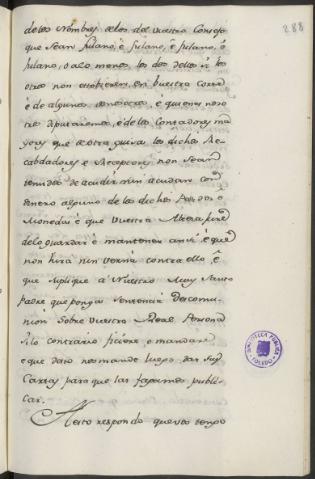 288
de los nombres de los del vuestro Consejo
que sean fulano, e fulano, e fulano, e
fulano, o alo menos los dos dellos si los
otros non estobieren en buestra Corte
é de algunas é quienes noso
tros diputaremos, é de los Contadores ma
yores que de otra guisa los dichos Re
cabdadores e Receptores non sean
tenidos de acudir nin acudan con
dinero alguno de los dichos Pedidos é
Monedas é que Vuestra Alteza jure
de lo guardar e mantener ansi é que
non hira nin verna contra ello, é
que suplique á Nuestro Muy Santo
Padre que ponga Sentencia Descomu-
nion sobre vuestra Real Persona
si lo contrario ficiere o mandare
e que dato nos mande luego dar sus
Cartas para que las fagamos publi-
car.
Aesto respondo que esto tengo
BIBLIOTECA PUBLICA
TOLEDO